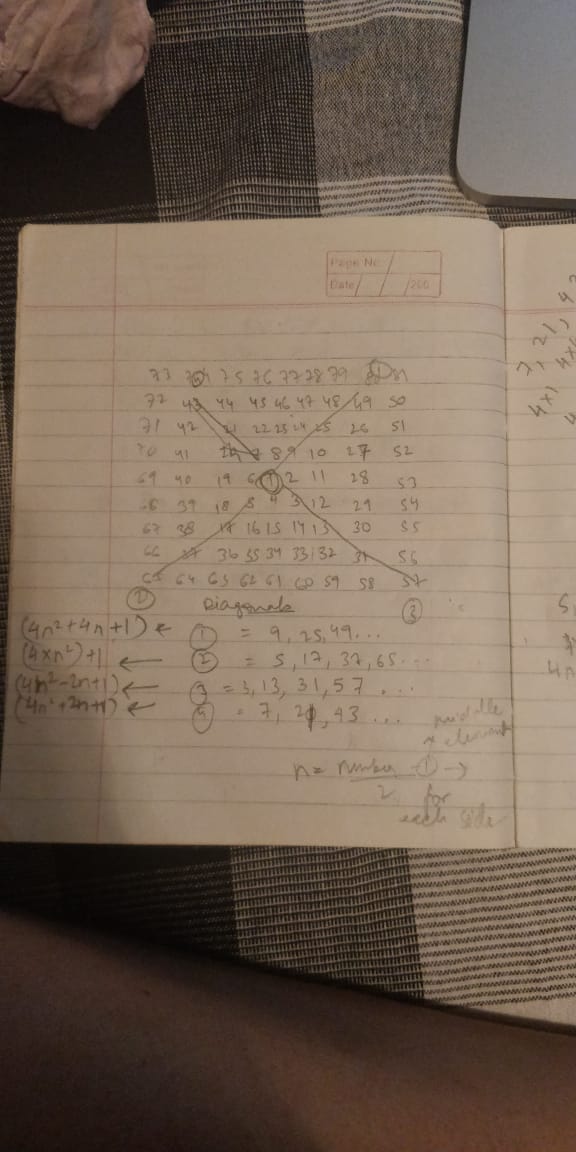 Page No.
Date / / 200
73 74 75 76 77 78 79 80 81
72 43 44 45 46 47 48 49 50
71 42 21 22 23 24 25 26 51
70 41 20 7 8 9 10 27 52
69 40 19 6 1 2 11 28 53
68 39 18 5 4 3 12 29 54
67 38 17 16 15 14 13 30 55
66 37 36 35 34 33 32 31 56
65 64 63 62 61 60 59 58 57
② Diagonals ③
(4n²+4n+1) ← ① = 9, 25, 49...
(4×n²)+1 ← ② = 5, 17, 37, 65...
(4n²-2n+1) ← 3 = 3, 13, 31, 57 ...
(4n²+2n+1) ← 4 = 7, 21, 43 ...
middle
element
n = number - ① →
2 for
each side
7, 21, 4
4×1 4×
4